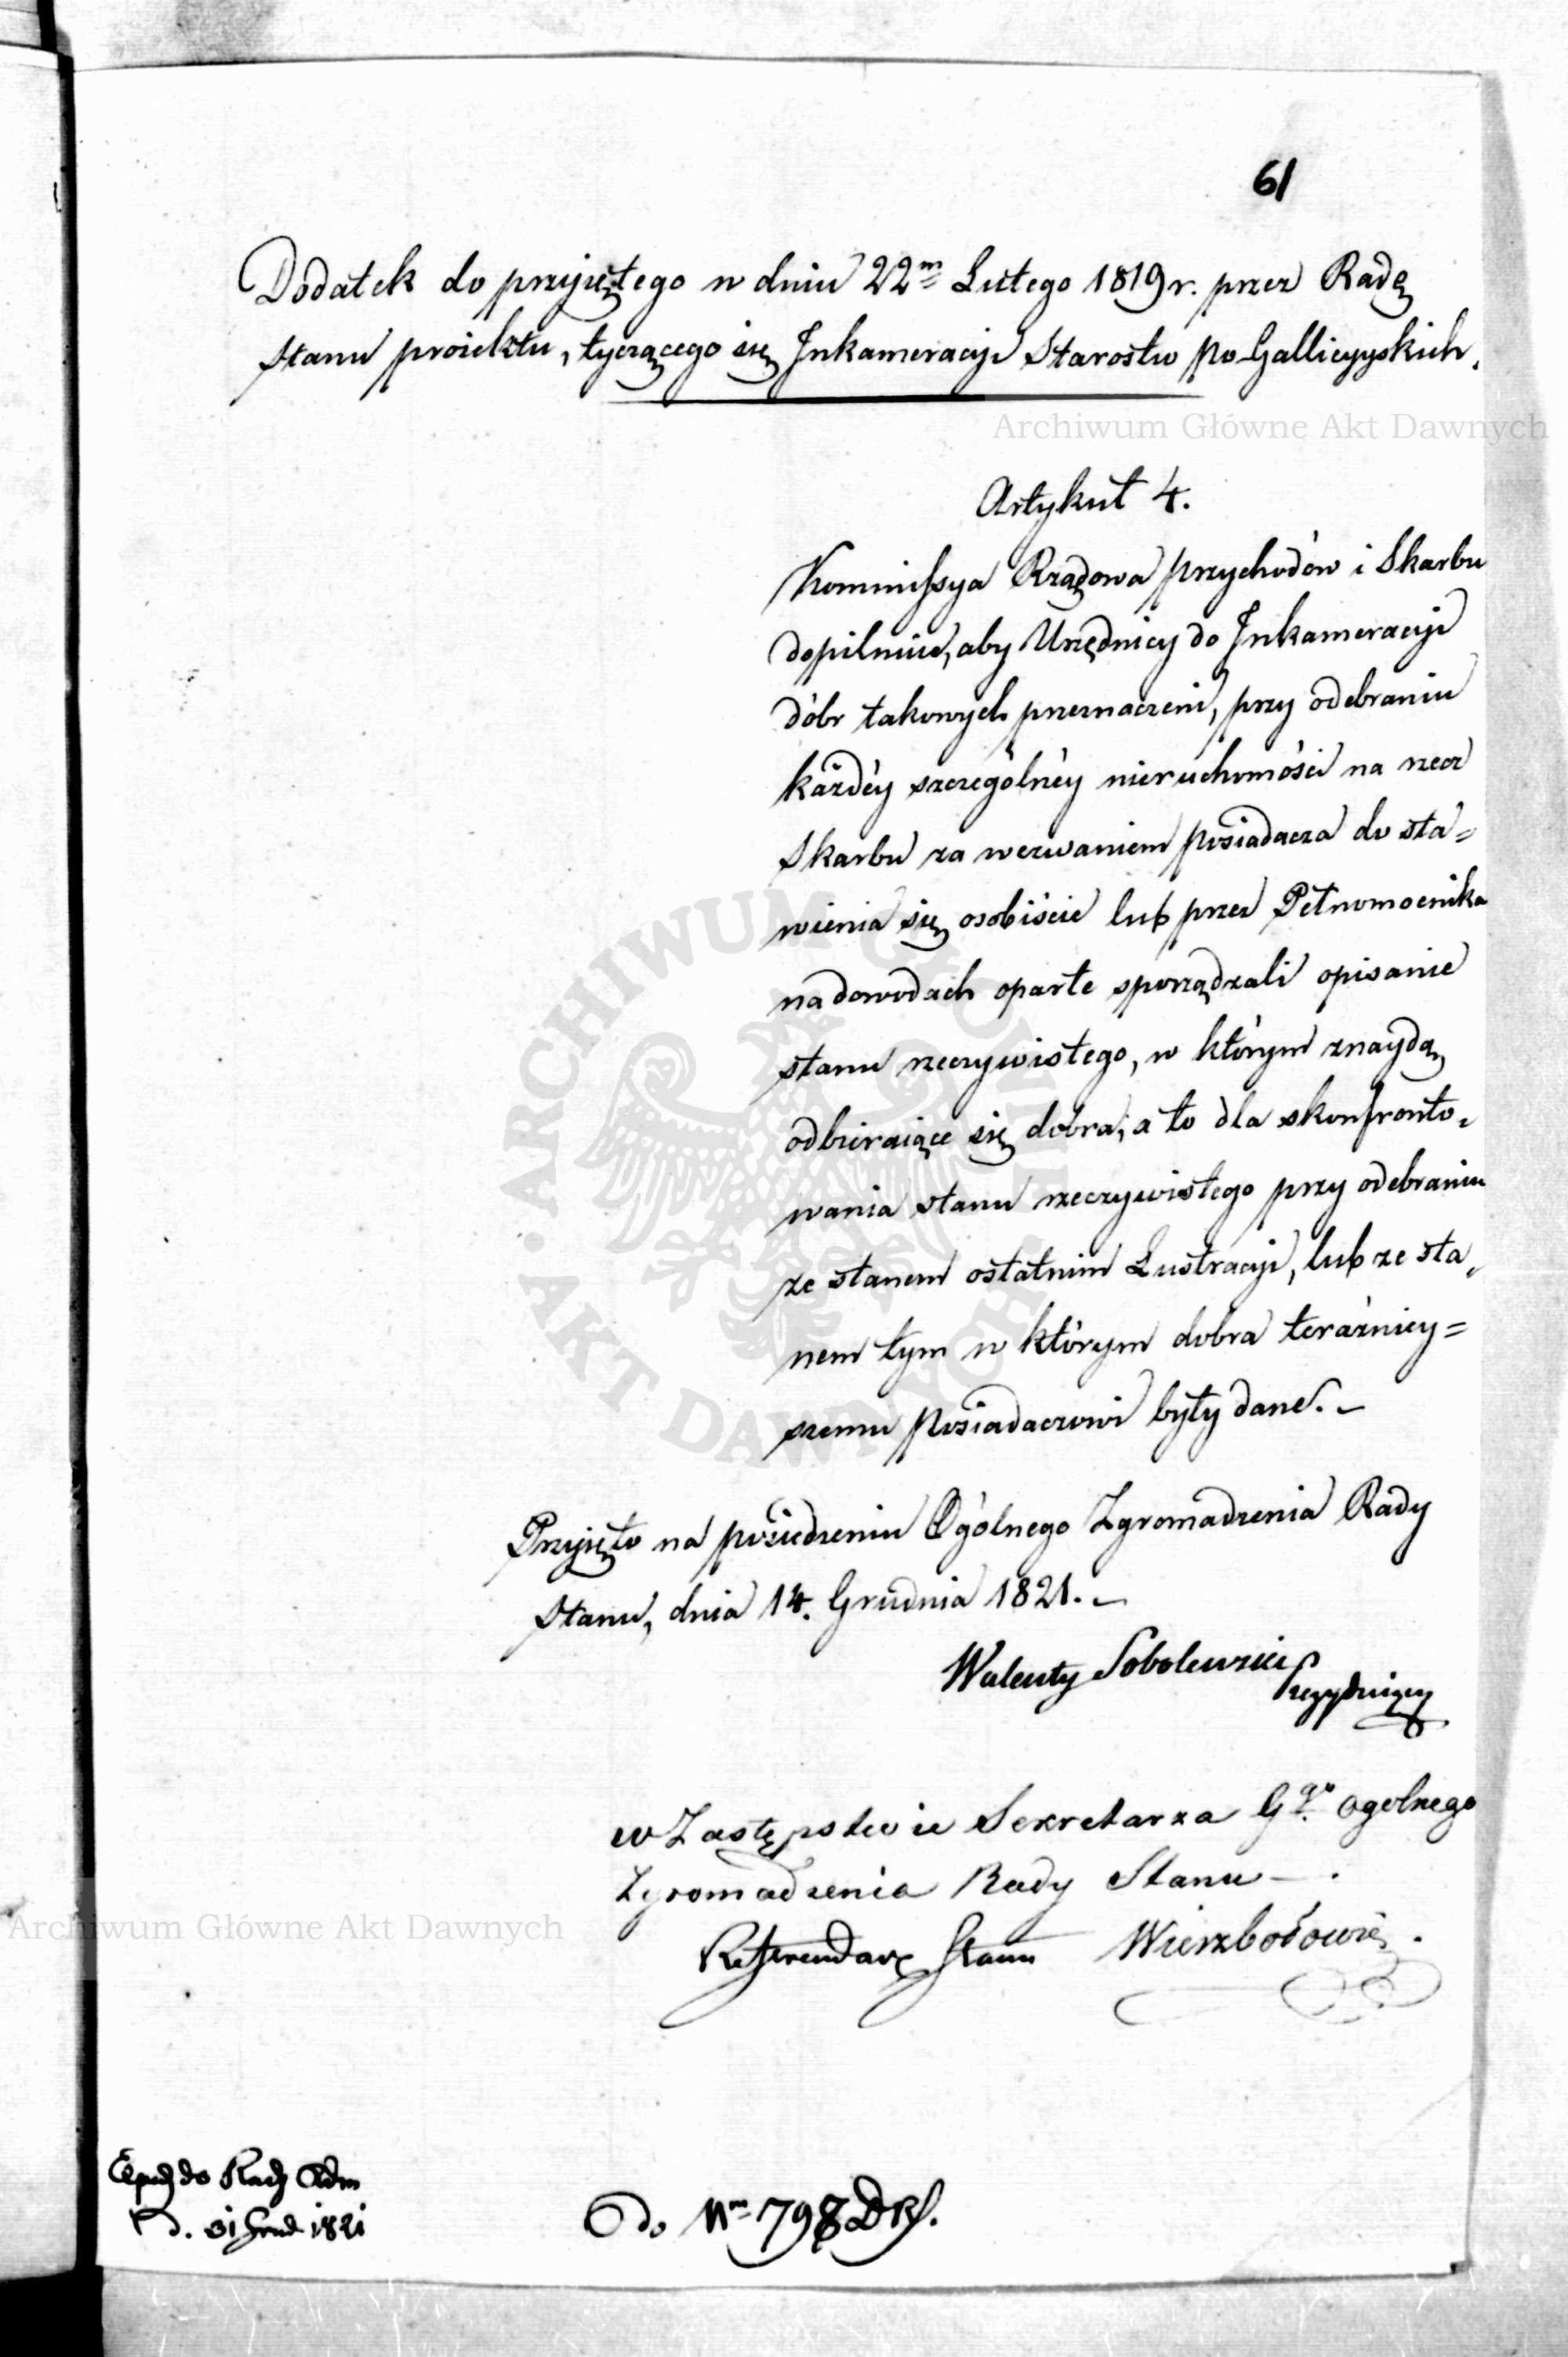 61
Dodatek do przyiętego w dniu 22m Lutego 1819 r. przez Radę
Stanu proiektu, tyczącego się Inkameracyi Starostw po-Gallicyyskich.
Archiwum Główne Akt Dawnych
Artykuł 4.
Kommissya Rządowa przychodów i Skarbu
dopilnuie, aby Urzędnicy do Inkameracyi
dóbr takowych przeznaczeni, przy odebraniu
każdéy szczególnéy nieruchomości na rzecz
Skarbu za wezwaniem posiadacza do sta=
wienia się osobiście lub przez Pełnomocnika
na dowodach oparte sporządzali opisanie
stanu rzeczywistego, w którym znaydą
odbieraiące się dobra, a to dla skonfronto=
wania stanu rzeczywistego przy odebraniu
ze stanem ostatnim Lustracyi, lub ze sta=
nem tym w którym dobra teraźniey=
szemu posiadaczowi były dane. –
Przyięto na posiedzeniu Ogólnego Zgromadzenia Rady
Stanu, dnia 14. Grudnia 1821. –
Walenty Sobolewski
Prezyduiący
w Zastępstwie Sekretarza Ggo. Ogolnego
Zgromadzenia Rady Stanu –.
Referendarz Stanu Wierzbołowicz.
Archiwum Główne Akt Dawnych
do Rady Adm
d. 31 Grud 1821
Do Nro 798 DRS.
ARCHIWUM GŁÓWNE • AKT DAWNYCH •